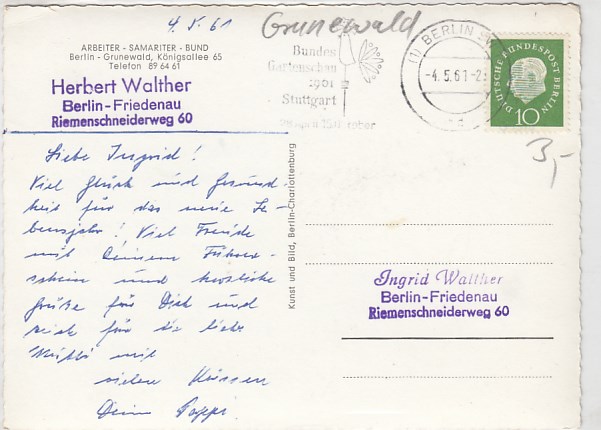 4. 5. 61
Grunewald
ARBEITER - SAMARITER - BUND
Berlin - Grunewald, Königsallee 65
Telefon 89 64 61
Herbert Walther
Berlin-Friedenau
Riemenschneiderweg 60
Bundes
Gartenschau
1961
Stuttgart
(1) BERLIN
-4.5.61-2
DEUTSCHE BUNDESPOST BERLIN
10
3,-
Liebe Ingrid!
Viel Glück und Gesund-
heit für das neue Le-
bensjahr! Viel Freude
mit Deinem Führer-
schein und herzliche
Grüße für Dich und
auch für die liebe
Mutti mit
vielen Küssen
Dein Pappi
Kunst und Bild, Berlin-Charlottenburg
Ingrid Walther
Berlin-Friedenau
Riemenschneiderweg 60